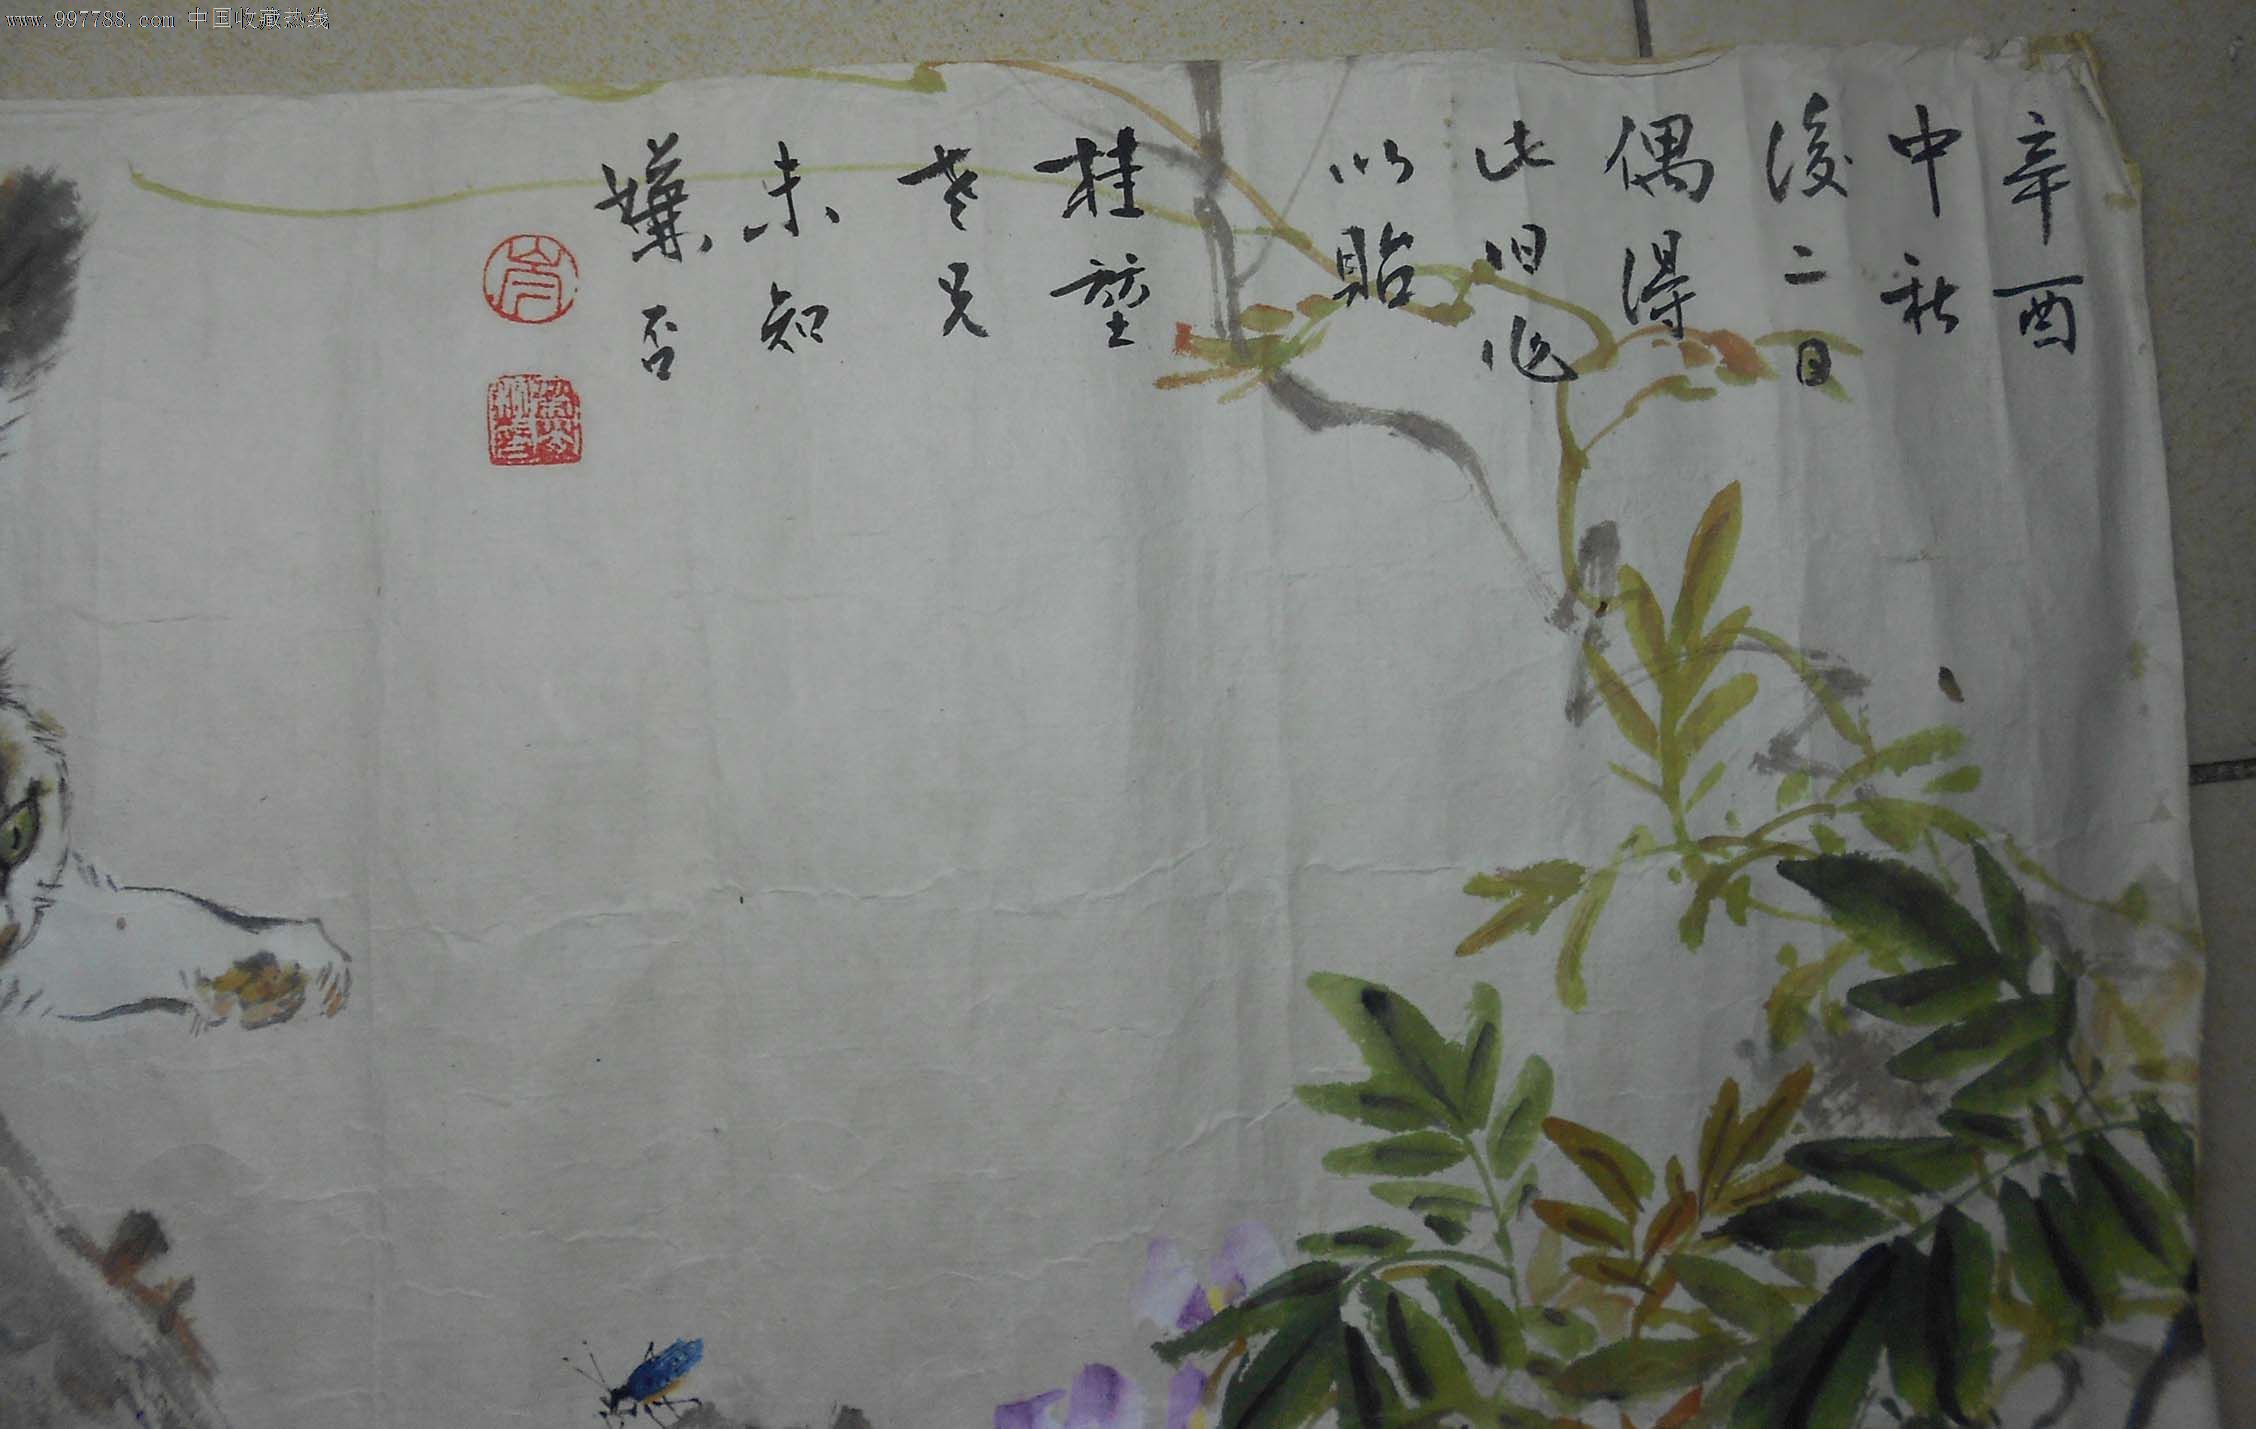 www.997788.com 中国收藏热线
辛酉
中秋
後二日
偶得
此旧作
以貽
桂堃
老兄
未知
嫌否